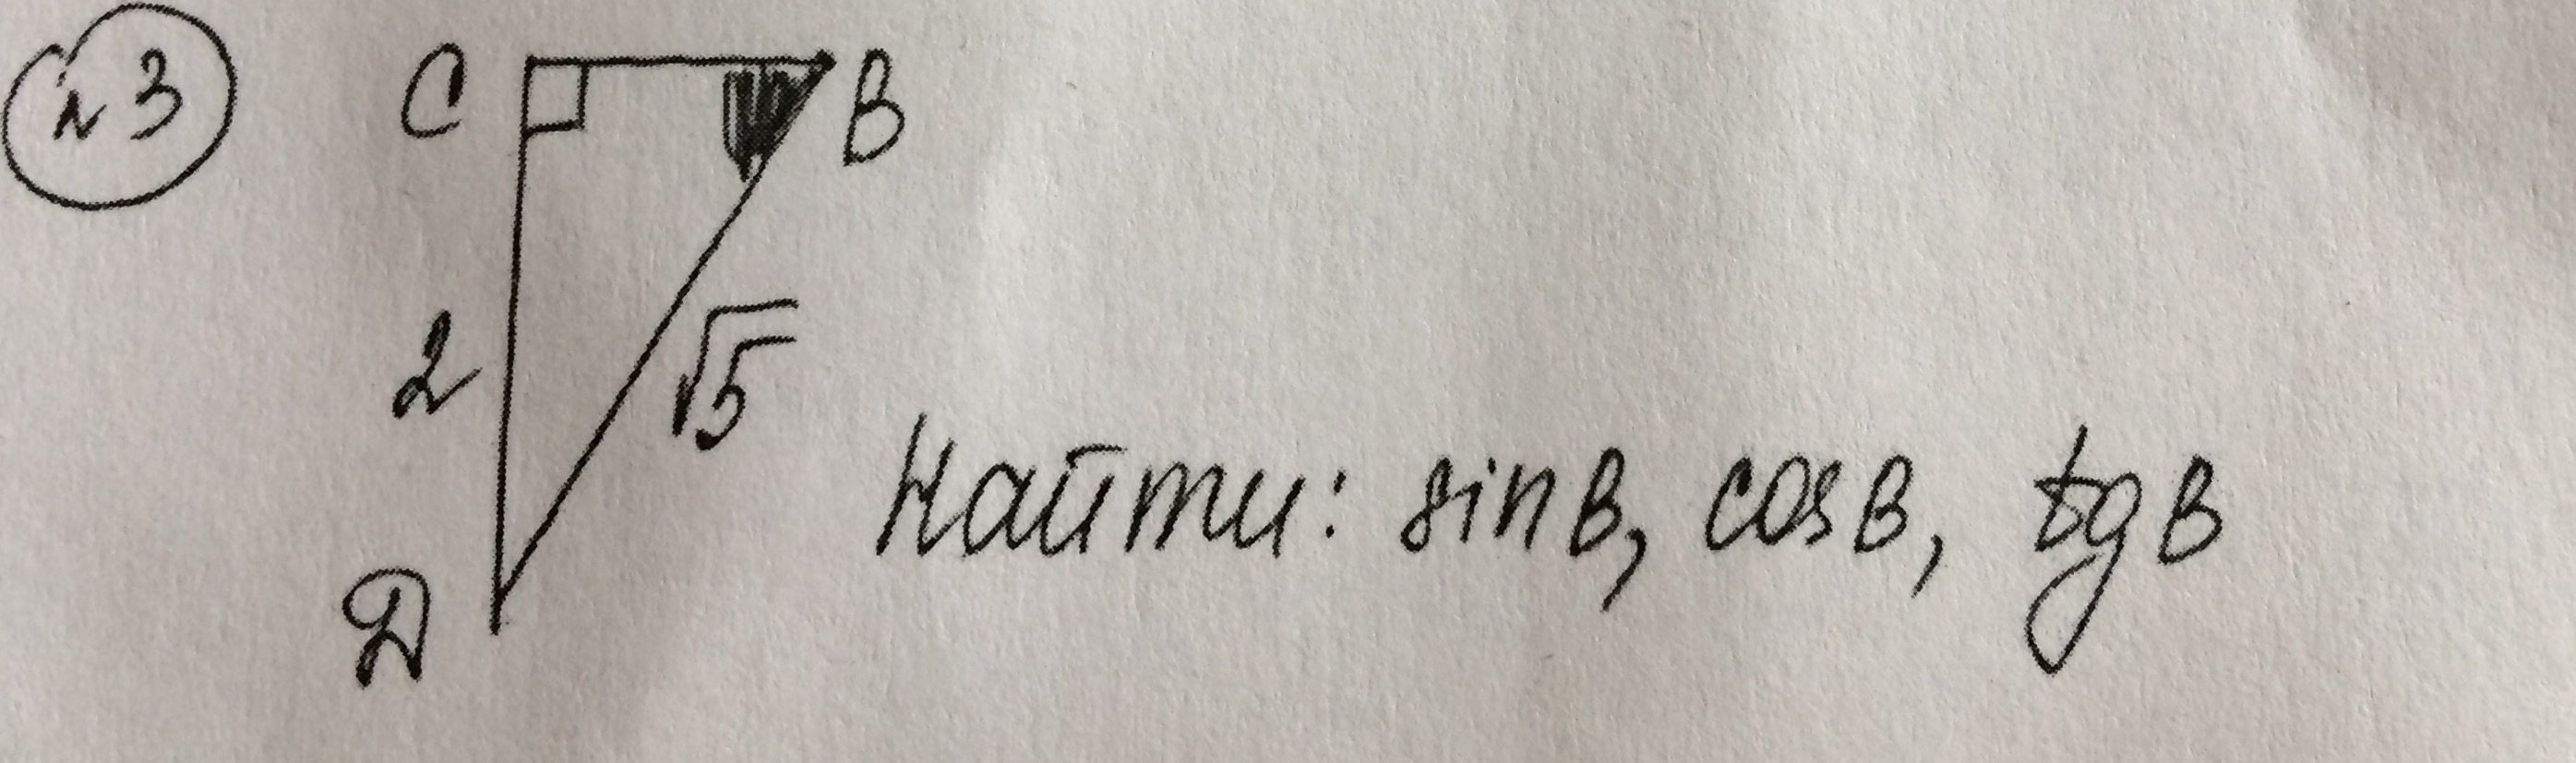 №3
C
B
2
√5
Найти: sin B, cos B, tg B
Д